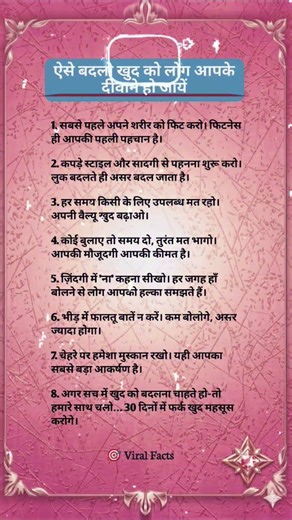 ऐसे बदलो खुद को लोग आपके
दीवाने हो जायें
1. सबसे पहले अपने शरीर को फिट करो। फिटनेस
ही आपकी पहली पहचान है।
2. कपड़े स्टाइल और सादगी से पहनना शुरू करो।
लुक बदलते ही असर बदल जाता है।
3. हर समय किसी के लिए उपलब्ध मत रहो।
अपनी वैल्यू खुद बढ़ाओ।
4. कोई बुलाए तो समय दो, तुरंत मत भागो।
आपकी मौजूदगी आपकी कीमत है।
5. ज़िंदगी में 'ना' कहना सीखो। हर जगह हाँ
बोलने से लोग आपको हल्का समझते हैं।
6. भीड़ में फालतू बातें न करें। कम बोलोगे, असर
ज्यादा होगा।
7. चेहरे पर हमेशा मुस्कान रखो। यही आपका
सबसे बड़ा आकर्षण है।
8. अगर सच में खुद को बदलना चाहते हो-तो
हमारे साथ चलो... 30 दिनों में फर्क खुद महसूस
करोगे।
Viral Facts